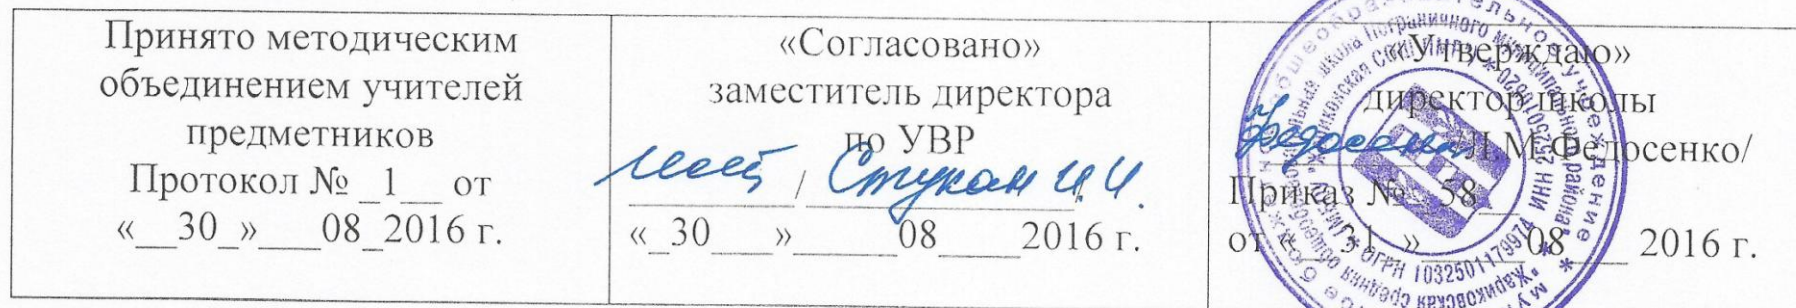 Принято методическим
объединением учителей
предметников
Протокол № _1__ от
«__30_»___08_2016 г.
«Согласовано»
заместитель директора
по УВР
/ Стукан И.И.
«_30___»______08____2016 г.
«Утверждаю»
директор школы
Федосен /Л.М.Федосенко/
Приказ №__58__
от «__31_»_____08___ 2016 г.
ОГРН 1032501179974 ИНН